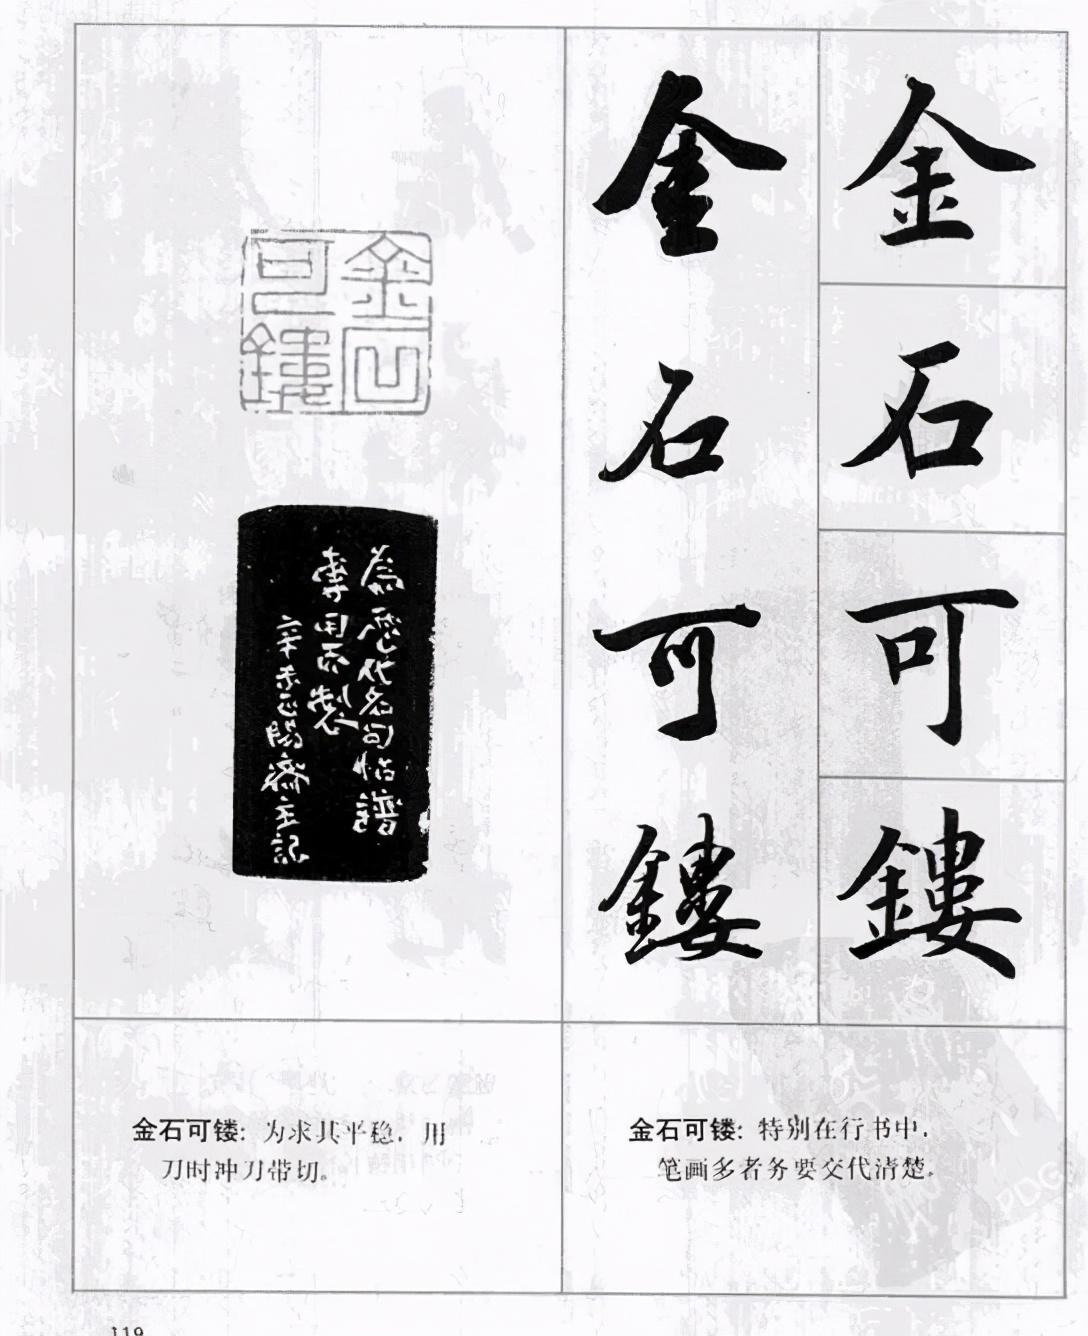 金石可鏤
金石可鏤
金石可鏤
為歷代名句帖譜
專用而製
辛未齋主
金石可镂：为求其平稳，用
刀时冲刀带切。
金石可镂：特别在行书中，
笔画多者务要交代清楚。
PDG
119